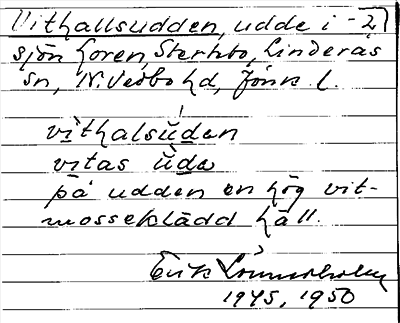 Vithallsudden, udde i -2
sjön Loren, Sterkbo, Linderås
sn, N. Vedbo hd, Jönk. l.
vithalsŭden
vitas ŭda
på udden en hög vit-
mosseklädd häll.
Erik Lönnerholm
1945, 1950